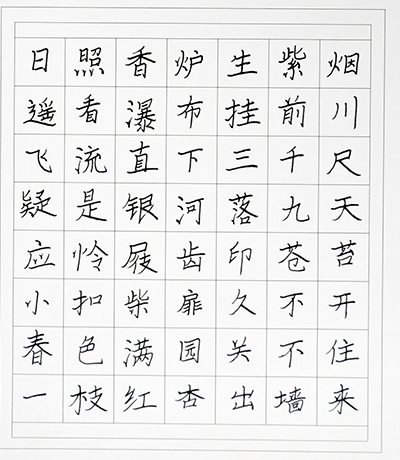 日照香炉生紫烟
遥看瀑布挂前川
飞流直下三千尺
疑是银河落九天
应怜屐齿印苍苔
小扣柴扉久不开
春色满园关不住
一枝红杏出墙来